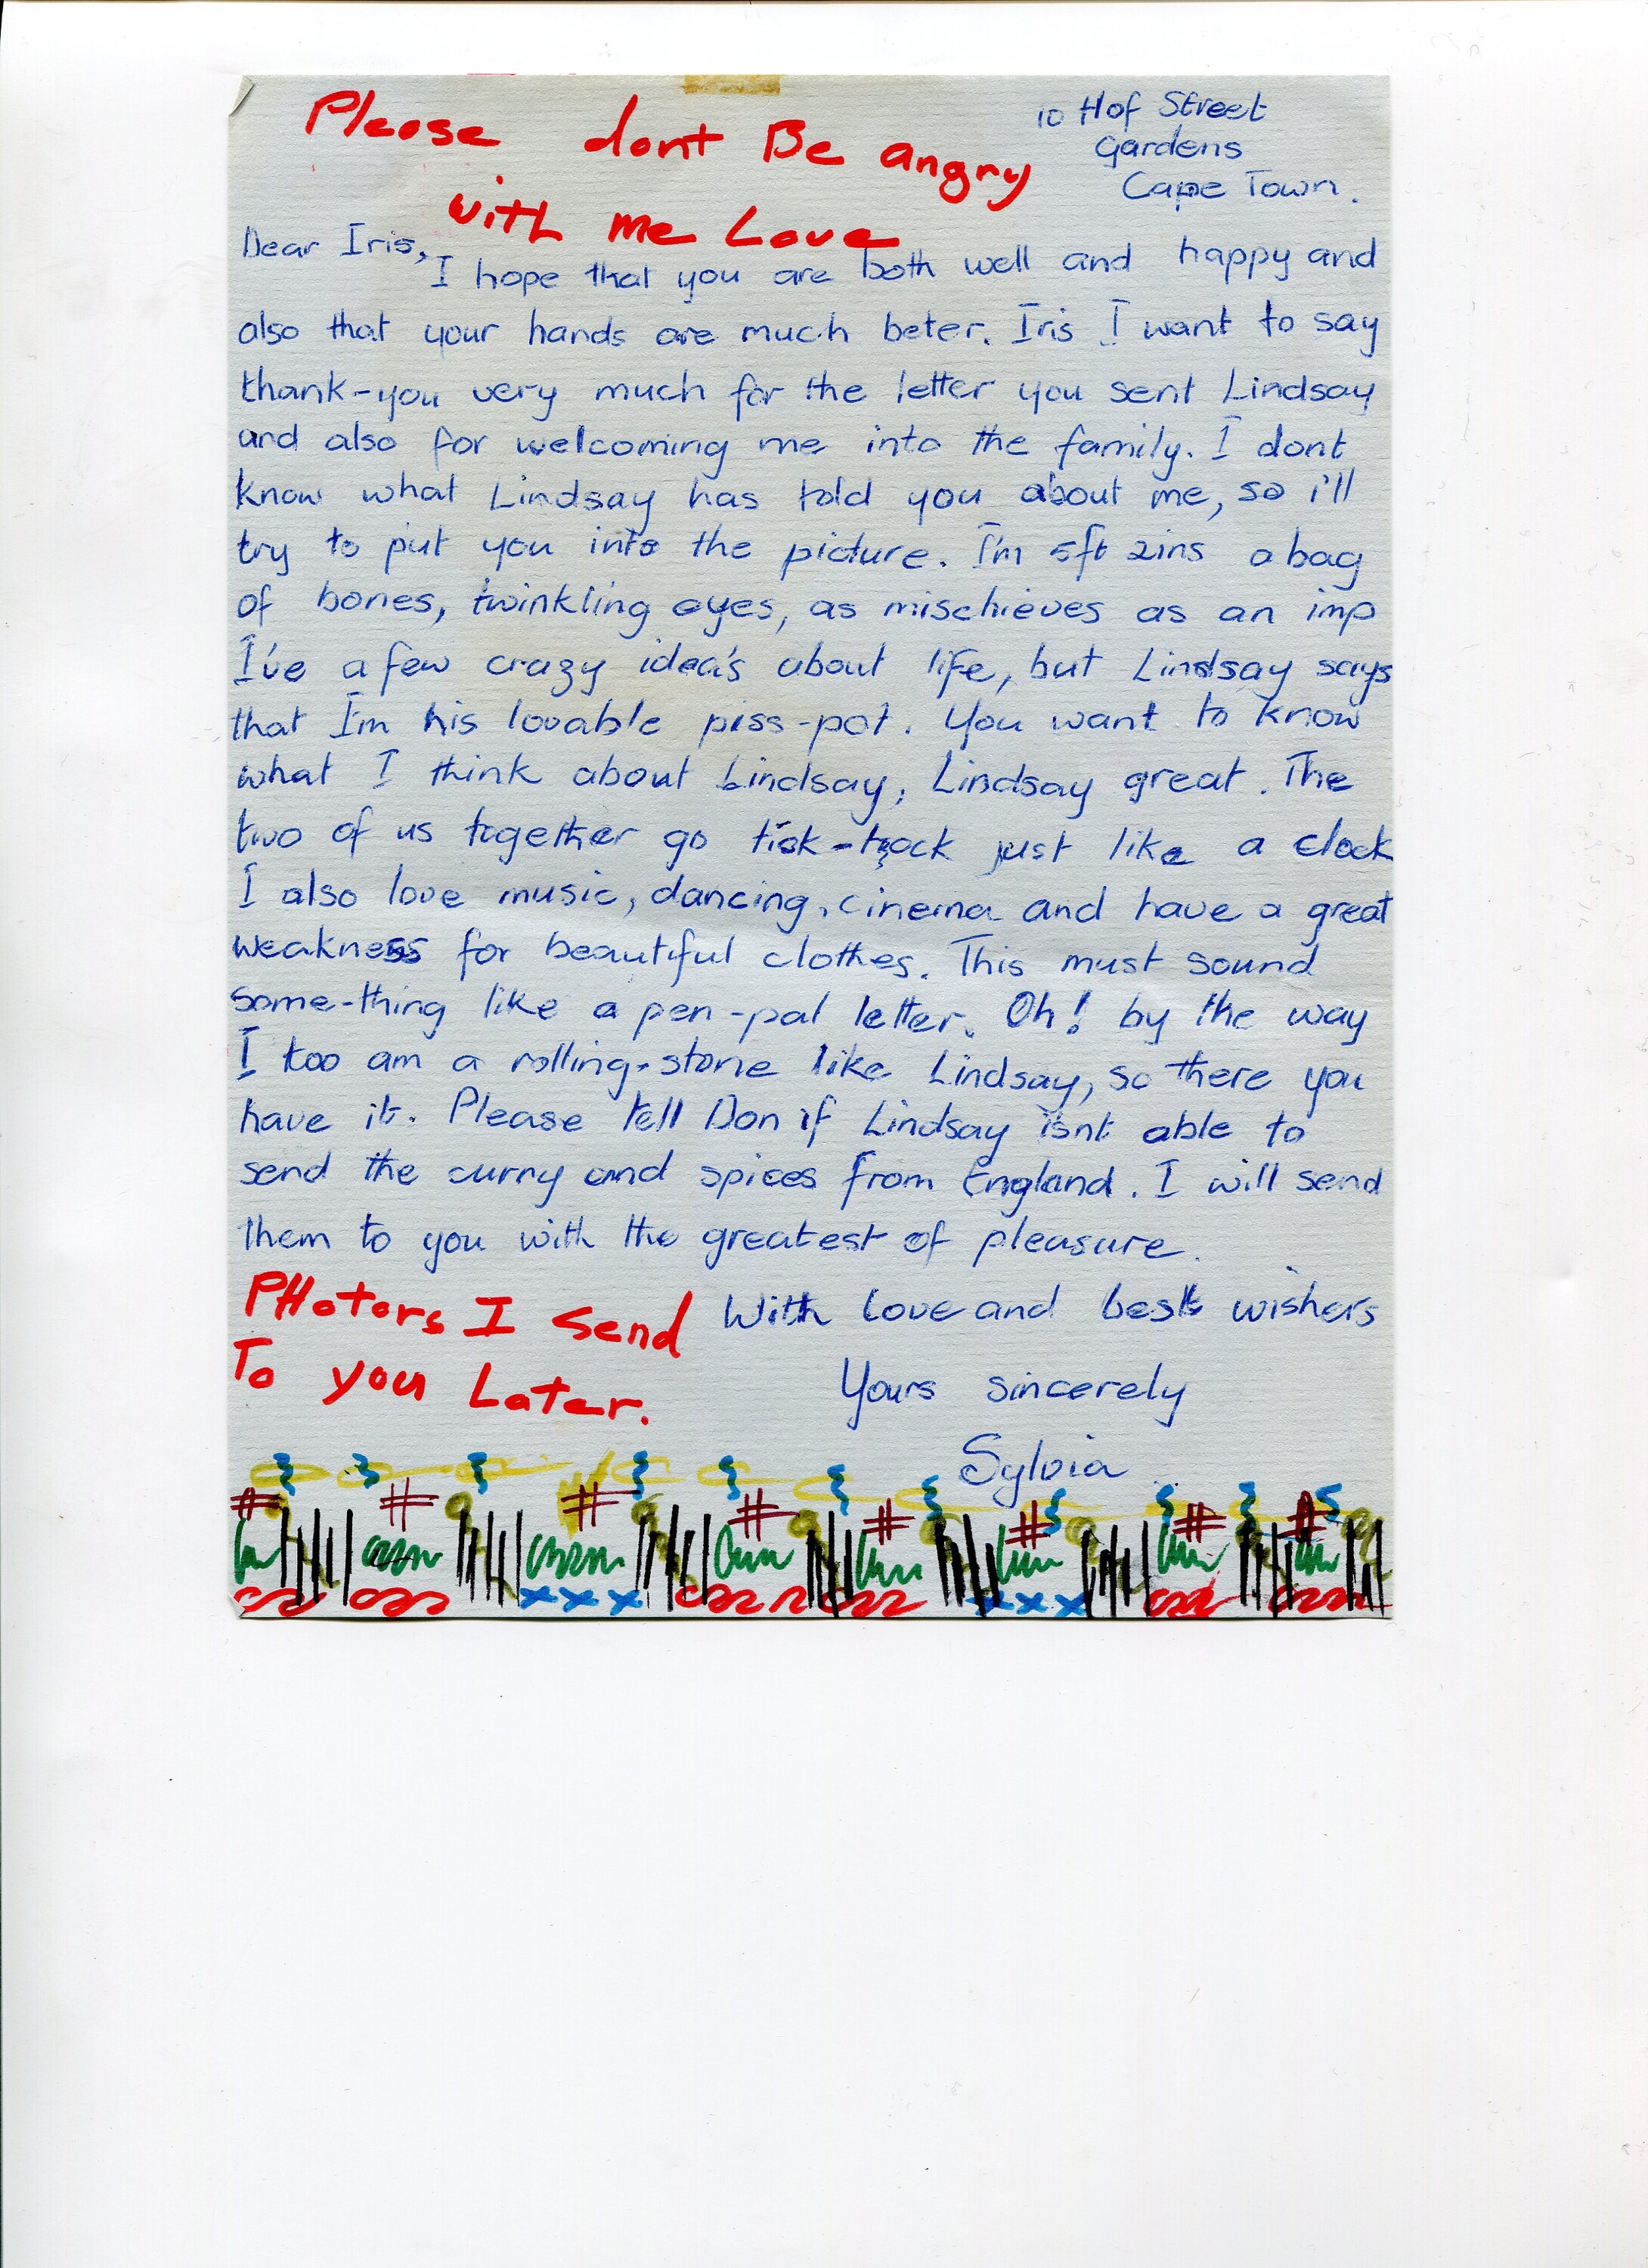 Please dont Be angry
with me Love
10 Hof Street
Gardens
Cape Town.
Dear Iris,
I hope that you are both well and happy and
also that your hands are much beter. Iris I want to say
thank-you very much for the letter you sent Lindsay
and also for welcoming me into the family. I dont
know what Lindsay has told you about me, so i'll
try to put you into the picture. I'm 5ft 2ins a bag
of bones, twinkling eyes, as mischieves as an imp
I've a few crazy idea's about life, but Lindsay says
that I'm his lovable piss-pot. You want to know
what I think about Lindsay, Lindsay great. The
two of us together go tick-tock just like a clock
I also love music, dancing, cinema and have a great
weakness for beautiful clothes. This must sound
some-thing like a pen-pal letter. Oh! by the way
I too am a rolling-stone like Lindsay, so there you
have it. Please tell Don if Lindsay isnt able to
send the curry and spices from England. I will send
them to you with the greatest of pleasure.
PHotors I Send
To you Later.
With love and best wishers
Yours sincerely
Sylvia